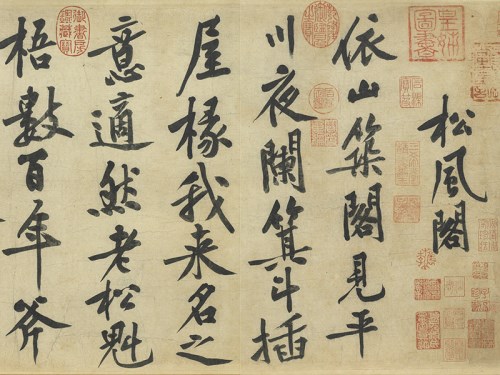 皇姊圖書
松風閣
依山築閣見平
川夜闌箕斗插
屋椽我来名之
意適然老松魁
梧數百年斧
御書房鑑藏寶